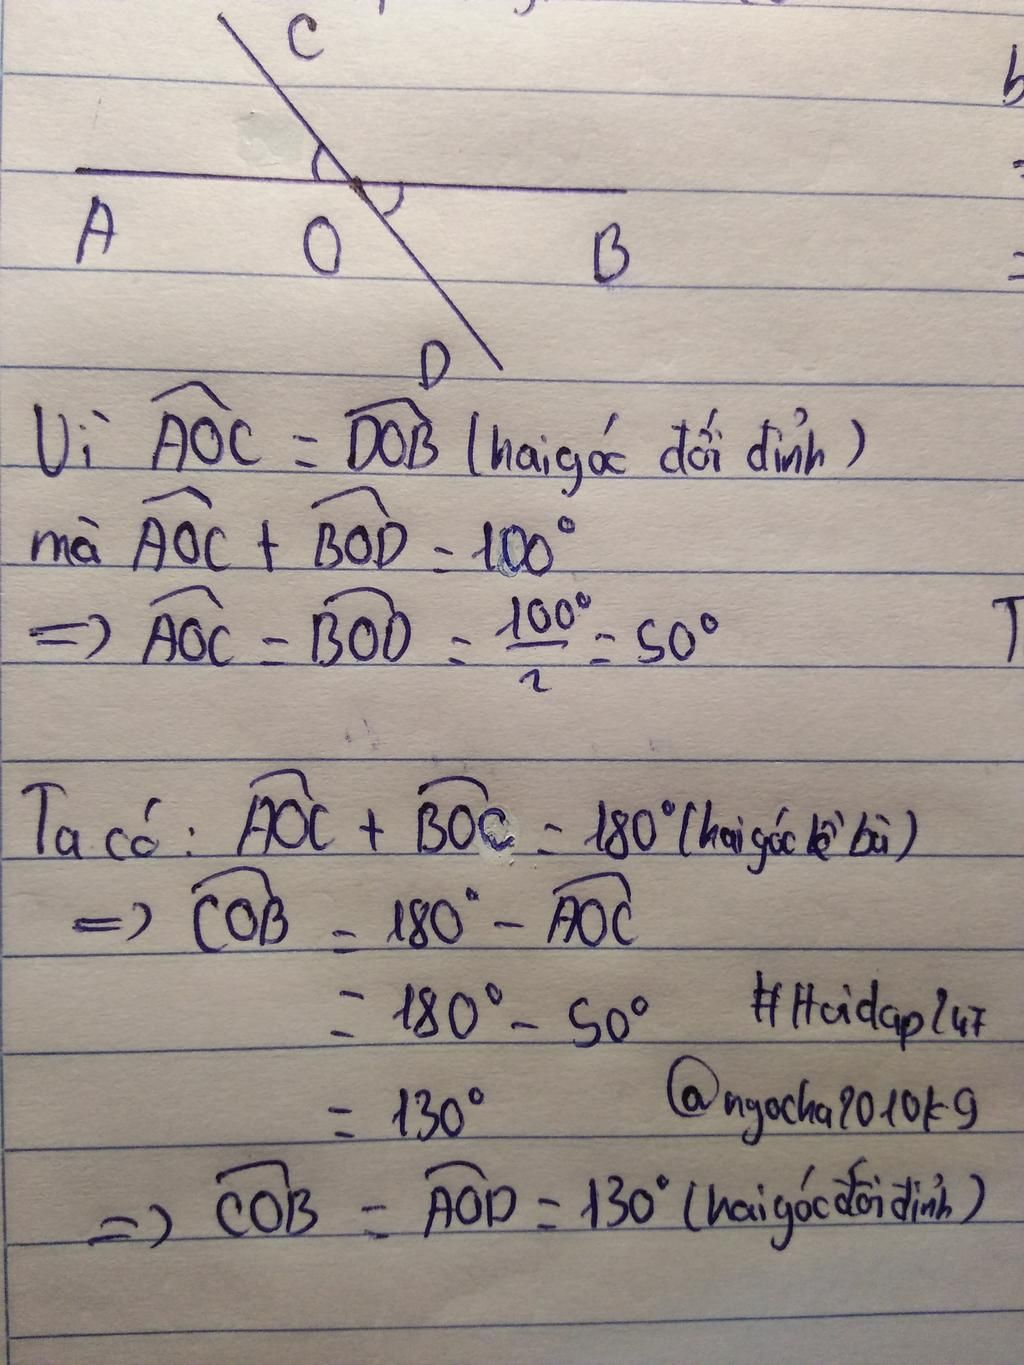 C
b
A
O
B
D
Vì AOC = DOB (hai góc đối đỉnh)
mà AOC + BOD = 100°
=> AOC = BOD = 100°/2 = 50°
T
Ta có: AOC + BOC = 180° (hai góc kề bù)
=> COB = 180° - AOC
= 180° - 50°
#Hoidap247
= 130°
@ngocha2010k9
=> COB = AOD = 130° (hai góc đối đỉnh)